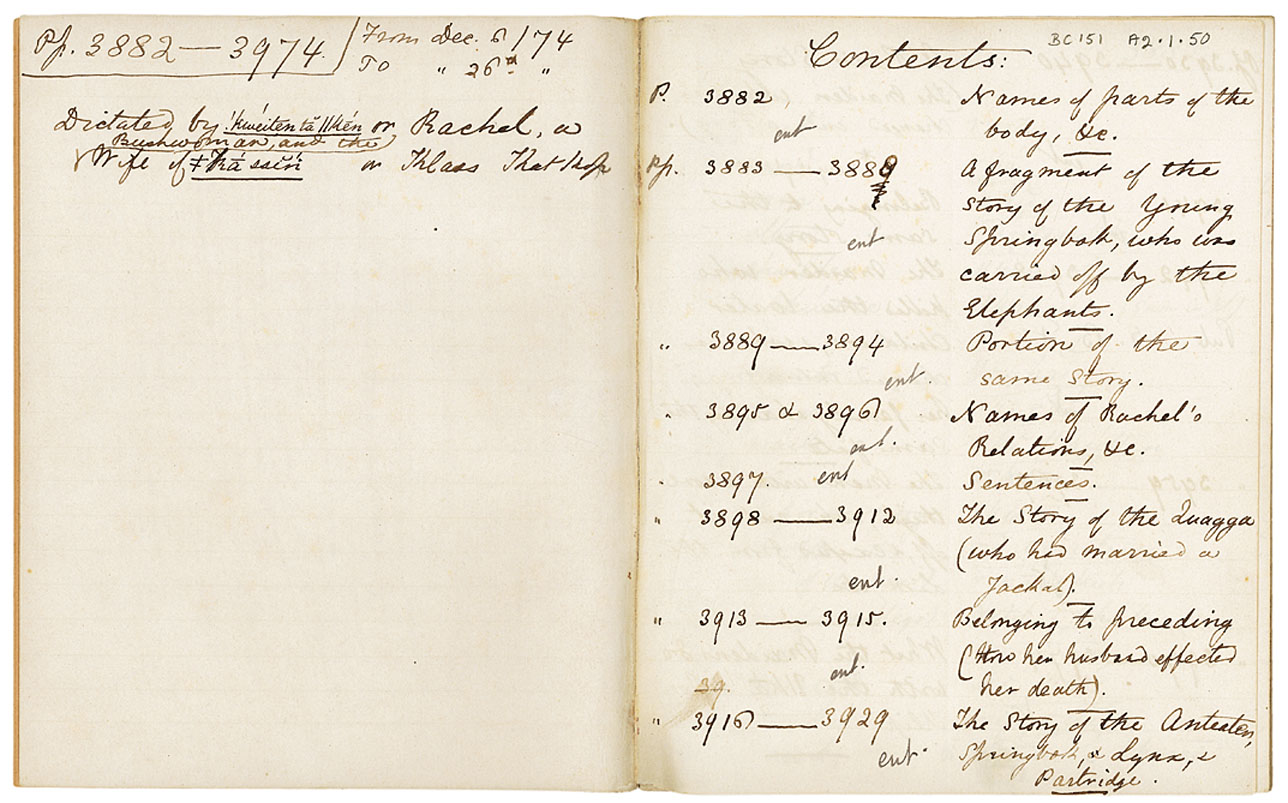 Pp. 3882 — 3974.
From Dec. 6/74
To " 26th "
Dictated by !kwéiten tā ||kēn or Rachel, a
Bushwoman, and the
Wife of ǂkássin or Klaas Katkop
BC 151 A2.1.50
Contents:
P. 3882 Names of parts of the
ent body, &c.
Pp. 3883 — 3889 A fragment of the
Story of the Young
ent Springbok, who was
carried off by the
Elephants.
" 3889 — 3894 Portion of the
ent. same Story.
" 3895 & 3896 Names of Rachel's
ent. Relations, &c.
" 3897. ent Sentences.
" 3898 — 3912 The Story of the Quagga
(who had married a
ent. Jackal).
" 3913 — 3915. Belonging to preceding
ent. (How her husband effected
39. her death).
" 3916 — 3929 The Story of the Anteater,
ent. Springbok, & Lynx, &
Partridge.